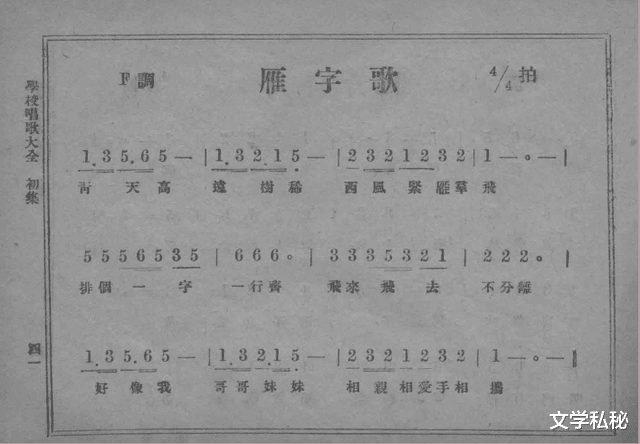 雁字歌
F調
4/4拍
1.3 5.6 5 — | 1.3 2.1 5 — | 2 3 2 1 2 3 2 | 1 — 。 — |
靑天高 遠樹稀 西風緊雁羣飛
5 5 5 6 5 3 5 | 6 6 6 。 | 3 3 3 5 3 2 1 | 2 2 2 。 |
排個一字 一行齊 飛來飛去 不分離
1.3 5.6 5 — | 1.3 2.1 5 — | 2 3 2 1 2 3 2 | 1 — 。 — ‖
好像我 哥哥妹妹 相親相愛手相攜
學校唱歌大全 初集
四一
文学私秘